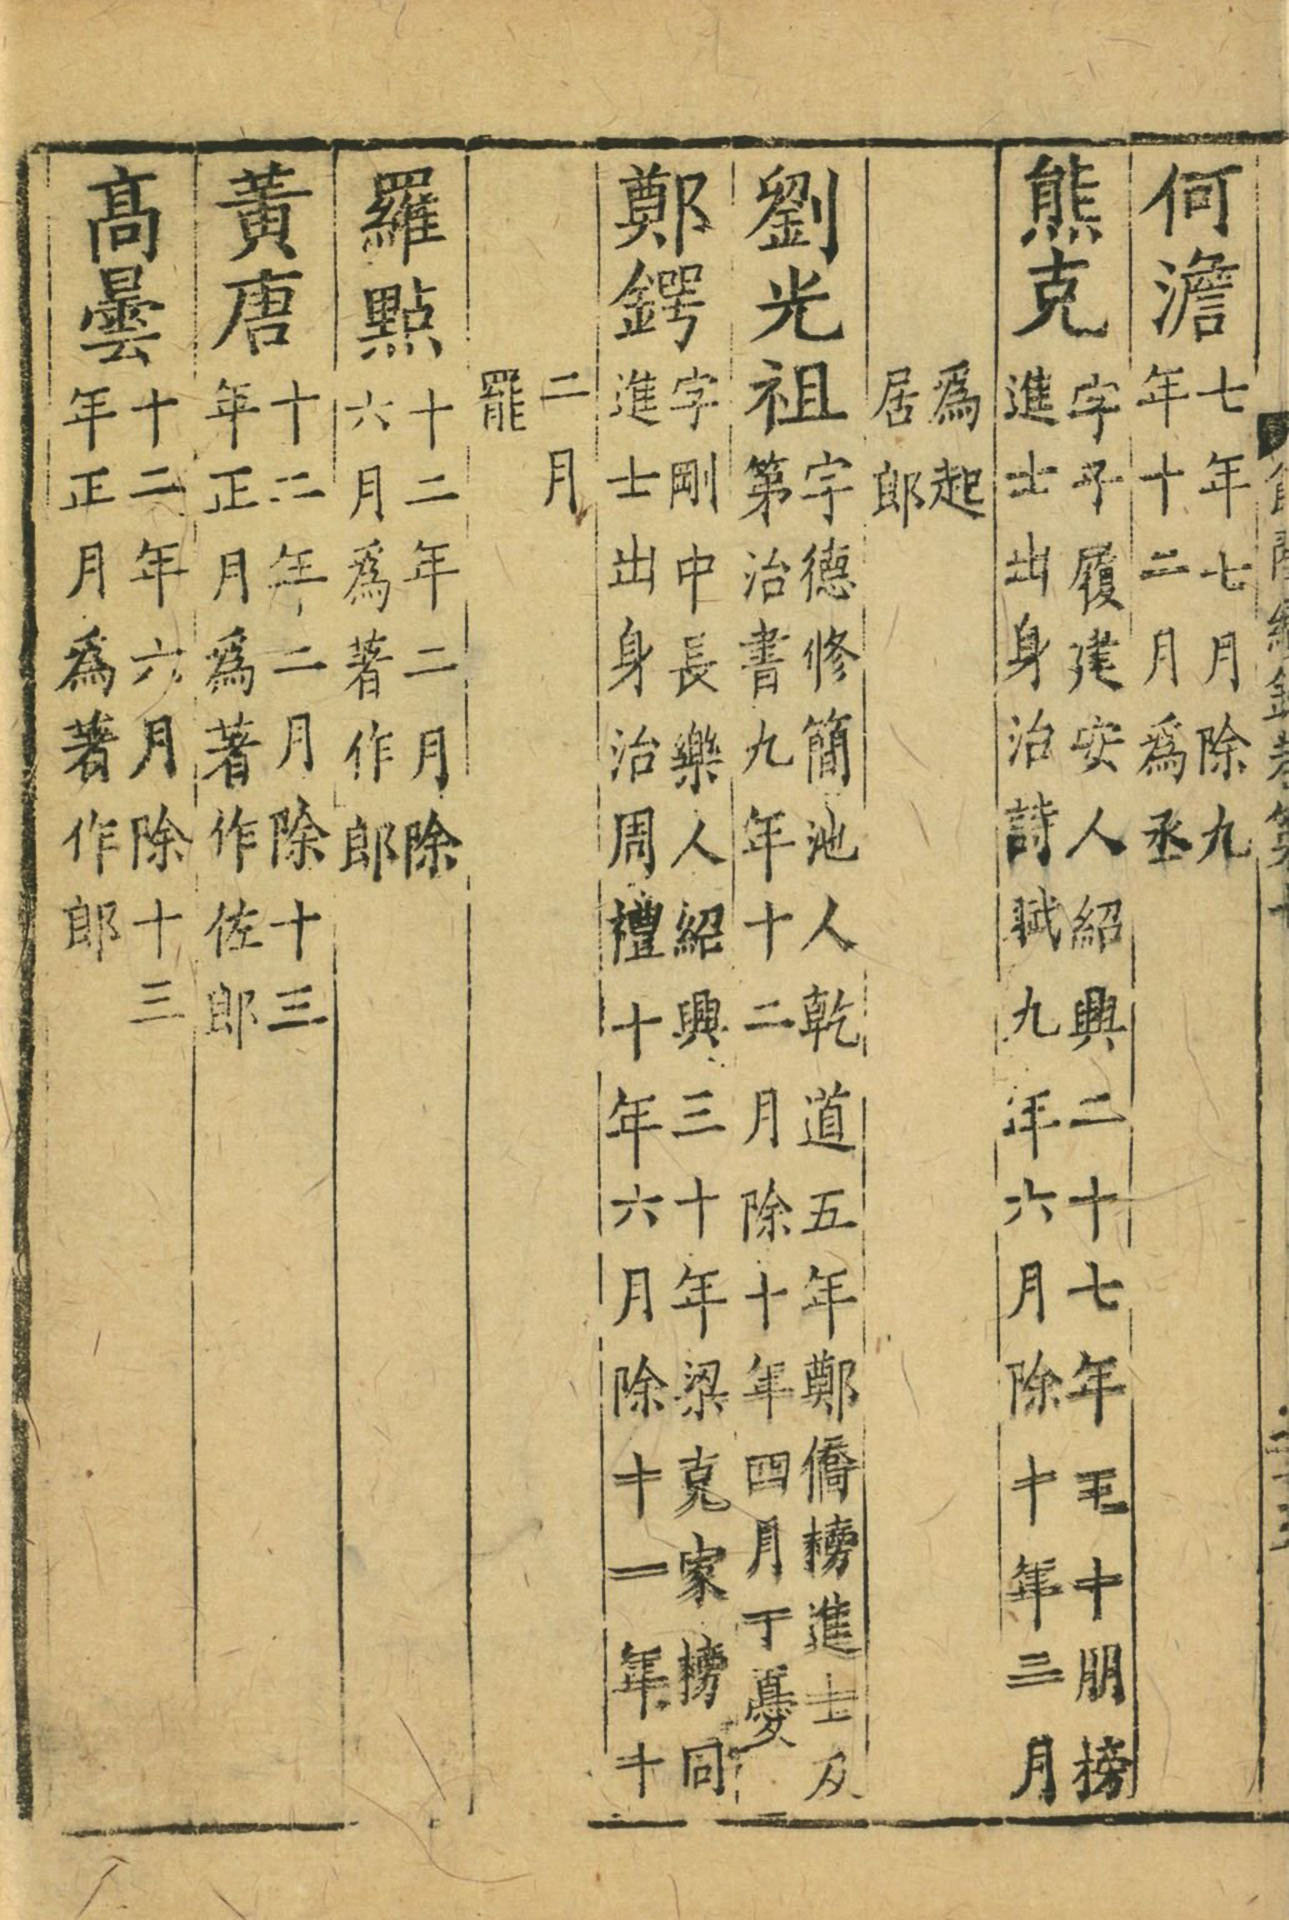 何澹七年七月除九
年十二月爲丞
熊克字子履建安人紹興二十七年王十朋榜
進士出身治詩賦九年六月除十年三月
爲起
居郎
劉光祖字德修簡池人乾道五年鄭僑榜進士及
第治書九年十二月除十年四月丁憂
鄭鍔字剛中長樂人紹興三十年梁克家榜同
進士出身治周禮十年六月除十一年十
二月
罷
羅點十二年二月除
六月爲著作郎
黃唐十二年二月除十三
年正月爲著作佐郎
高曇十二年六月除十三
年正月爲著作郎